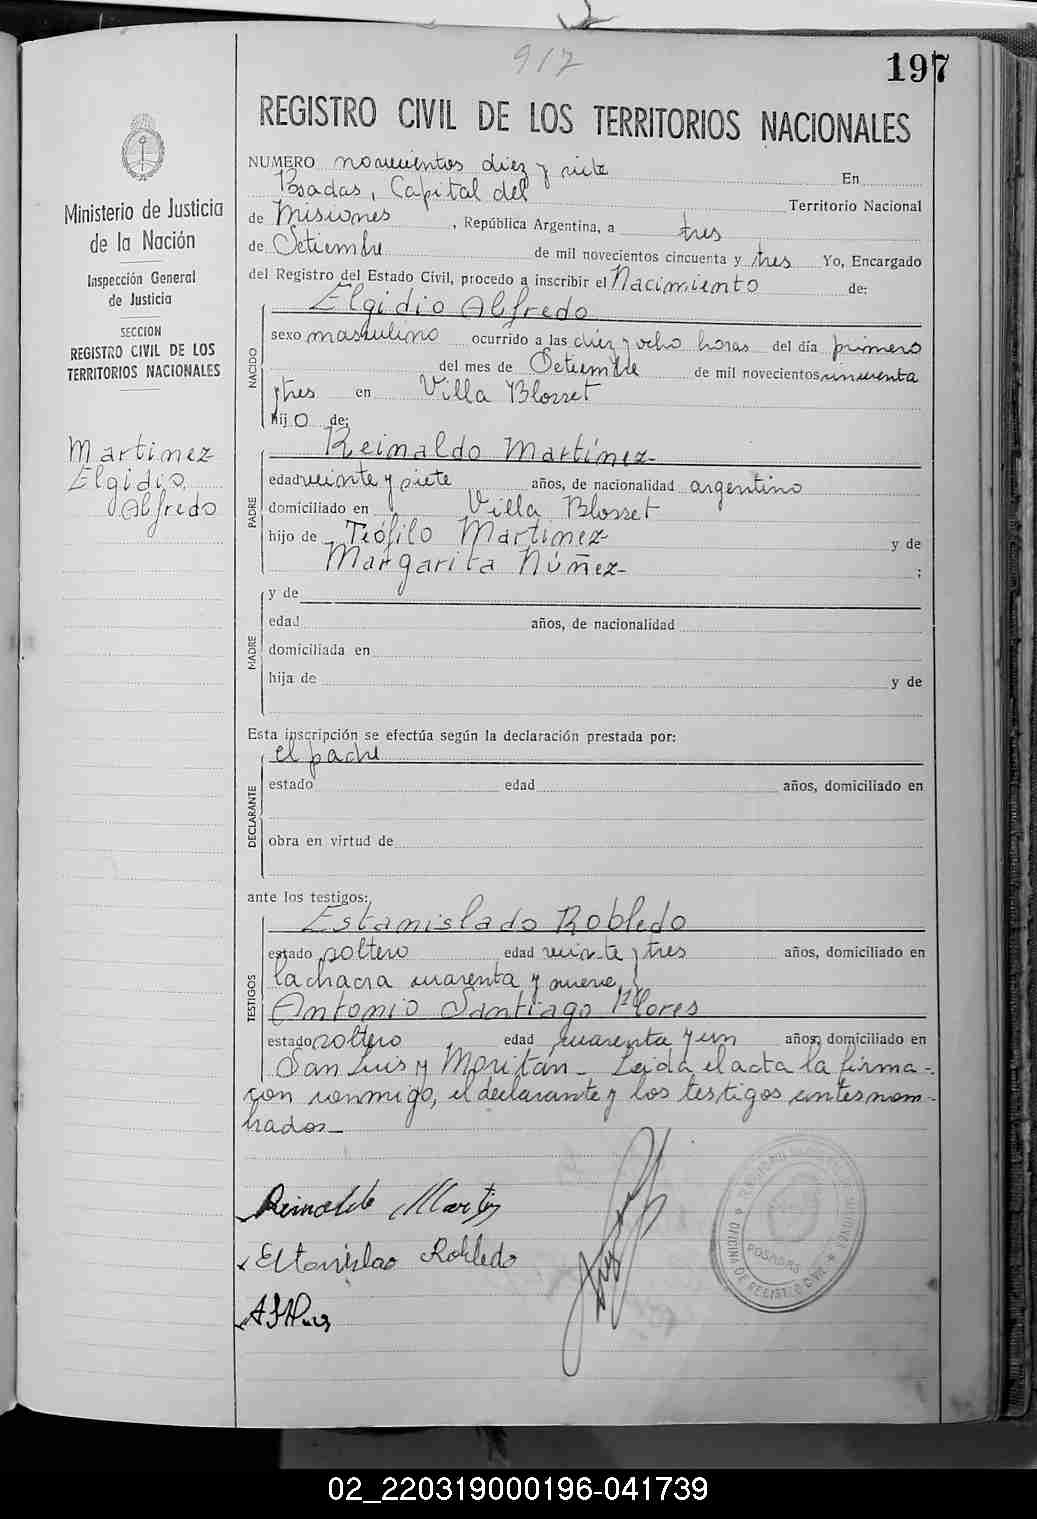 917
197
REGISTRO CIVIL DE LOS TERRITORIOS NACIONALES
Ministerio de Justicia
de la Nación
Inspección General
de Justicia
SECCION
REGISTRO CIVIL DE LOS
TERRITORIOS NACIONALES
Martinez
Elgidio
Alfredo
NUMERO novecientos diez y siete En
Posadas, Capital del Territorio Nacional
de Misiones, República Argentina, a tres
de Setiembre de mil novecientos cincuenta y tres Yo, Encargado
del Registro del Estado Civil, procedo a inscribir el Nacimiento de:
NACIDO
Elgidio Alfredo
sexo masculino ocurrido a las diez y ocho horas del día primero
del mes de Setiembre de mil novecientos cincuenta
y tres en Villa Blosset
hijo de:
PADRE
Reinaldo Martínez-
edad veinte y siete años, de nacionalidad argentino
domiciliado en Villa Blosset
hijo de Teófilo Martinez y de
Margarita Núñez- ;
MADRE
y de
edad años, de nacionalidad
domiciliada en
hija de y de
Esta inscripción se efectúa según la declaración prestada por:
DECLARANTE
el padre
estado edad años, domiciliado en
obra en virtud de
ante los testigos:
TESTIGOS
Estanislado Robledo
estado soltero edad veinte y tres años, domiciliado en
la chacra cuarenta y nueve, y
Antonio Santiago Flores
estado soltero edad cuarenta y un años, domiciliado en
San Luis y Moritán- Leida el acta la firma-
ron conmigo, el declarante y los testigos antesnom-
brados-
Reinaldo Martinez
Estanislao Robledo
OFICINA DE REGISTRO CIVIL
POSADAS
02_220319000196-041739